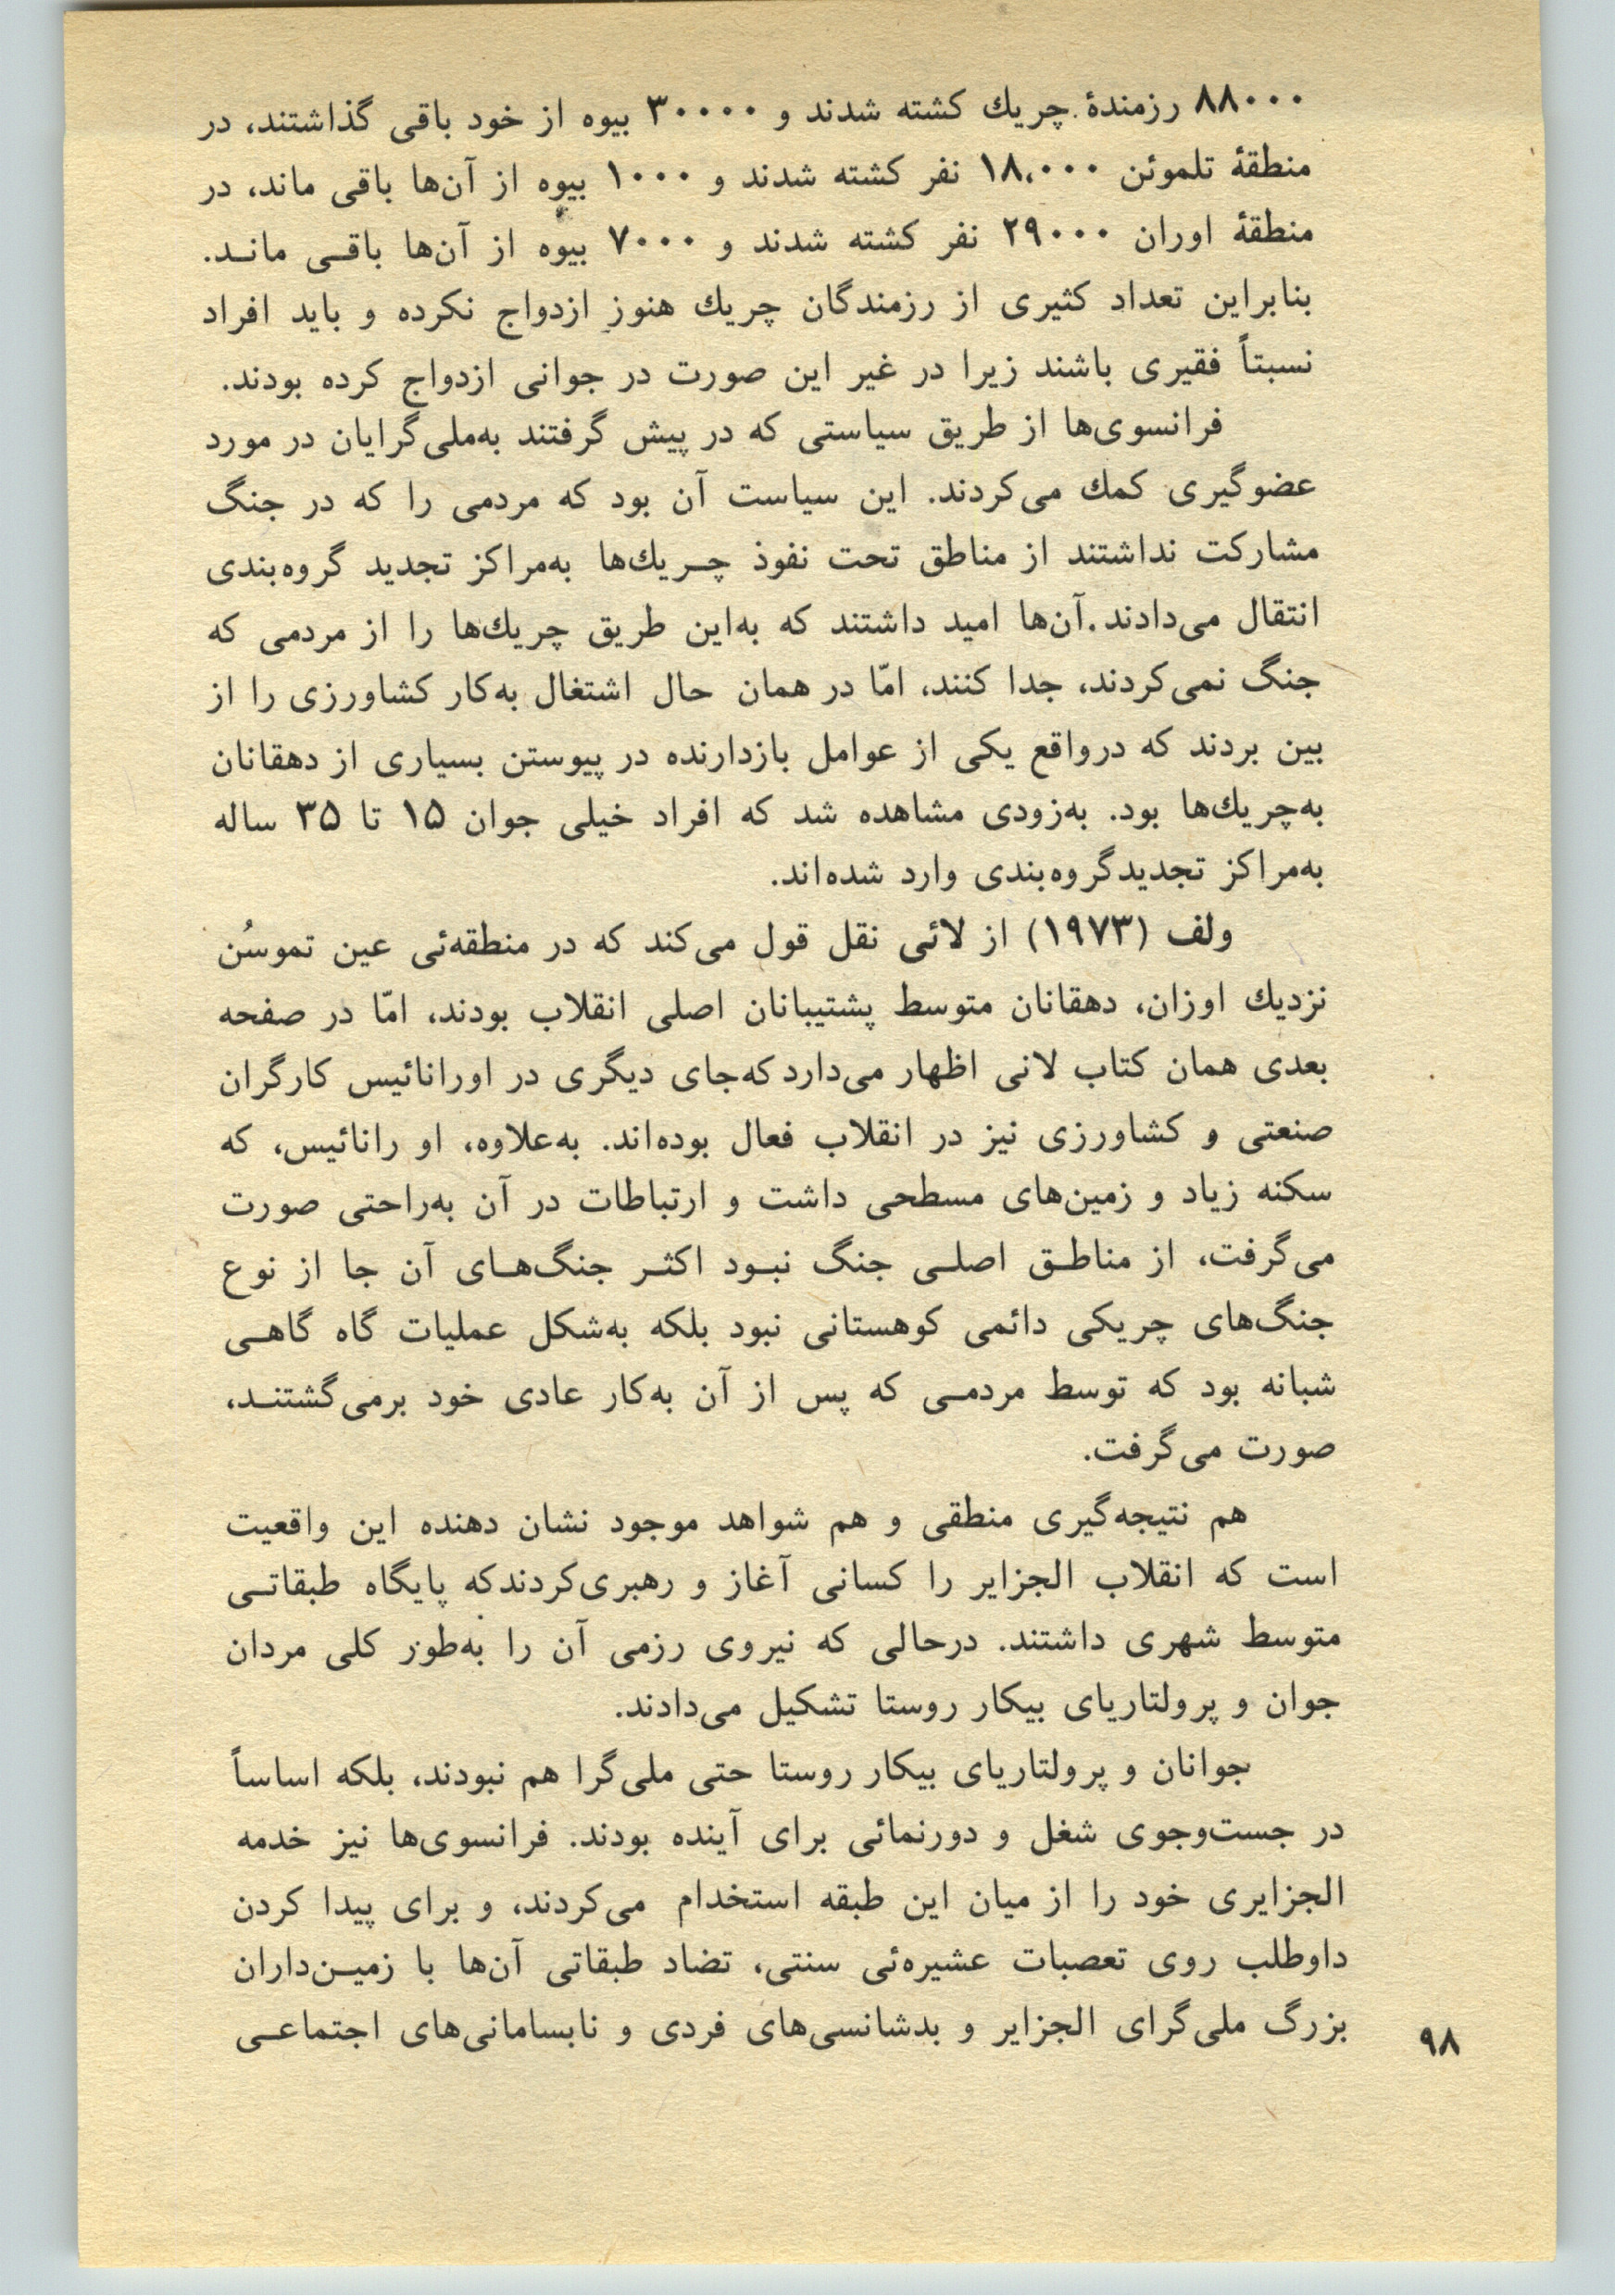 ۸۸۰۰۰ رزمندهٔ چریك کشته شدند و ۳۰۰۰۰ بیوه از خود باقی گذاشتند، در
منطقهٔ تلموئن ۱۸،۰۰۰ نفر کشته شدند و ۱۰۰۰ بیوه از آن‌ها باقی ماند، در
منطقهٔ اوران ۲۹۰۰۰ نفر کشته شدند و ۷۰۰۰ بیوه از آن‌ها باقی ماند.
بنابراین تعداد کثیری از رزمندگان چریك هنوز ازدواج نکرده و باید افراد
نسبتاً فقیری باشند زیرا در غیر این صورت در جوانی ازدواج کرده بودند.
فرانسوی‌ها از طریق سیاستی که در پیش گرفتند به‌ملی‌گرایان در مورد
عضوگیری کمك می‌کردند. این سیاست آن بود که مردمی را که در جنگ
مشارکت نداشتند از مناطق تحت نفوذ چریك‌ها به‌مراکز تجدید گروه‌بندی
انتقال می‌دادند. آن‌ها امید داشتند که به‌این طریق چریك‌ها را از مردمی که
جنگ نمی‌کردند، جدا کنند، امّا در همان حال اشتغال به‌کار کشاورزی را از
بین بردند که درواقع یکی از عوامل بازدارنده در پیوستن بسیاری از دهقانان
به‌چریك‌ها بود. به‌زودی مشاهده شد که افراد خیلی جوان ۱۵ تا ۳۵ ساله
به‌مراکز تجدیدگروه‌بندی وارد شده‌اند.
ولف (۱۹۷۳) از لائی نقل قول می‌کند که در منطقه‌ئی عین تموسُن
نزدیك اوزان، دهقانان متوسط پشتیبانان اصلی انقلاب بودند، امّا در صفحه
بعدی همان کتاب لانی اظهار می‌دارد که‌جای دیگری در اورانائیس کارگران
صنعتی و کشاورزی نیز در انقلاب فعال بوده‌اند. به‌علاوه، او رانائیس، که
سکنه زیاد و زمین‌های مسطحی داشت و ارتباطات در آن به‌راحتی صورت
می‌گرفت، از مناطق اصلی جنگ نبود اکثر جنگ‌های آن جا از نوع
جنگ‌های چریکی دائمی کوهستانی نبود بلکه به‌شکل عملیات گاه گاهی
شبانه بود که توسط مردمی که پس از آن به‌کار عادی خود برمی‌گشتند،
صورت می‌گرفت.
هم نتیجه‌گیری منطقی و هم شواهد موجود نشان دهنده این واقعیت
است که انقلاب الجزایر را کسانی آغاز و رهبری‌کردندکه پایگاه طبقاتی
متوسط شهری داشتند. درحالی که نیروی رزمی آن را به‌طور کلی مردان
جوان و پرولتاریای بیکار روستا تشکیل می‌دادند.
جوانان و پرولتاریای بیکار روستا حتی ملی‌گرا هم نبودند، بلکه اساساً
در جست‌وجوی شغل و دورنمائی برای آینده بودند. فرانسوی‌ها نیز خدمه
الجزایری خود را از میان این طبقه استخدام می‌کردند، و برای پیدا کردن
داوطلب روی تعصبات عشیره‌ئی سنتی، تضاد طبقاتی آن‌ها با زمین‌داران
بزرگ ملی‌گرای الجزایر و بدشانسی‌های فردی و نابسامانی‌های اجتماعی
۹۸